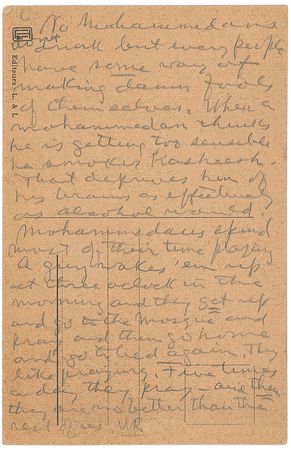 No Mohammedans
do not drink but every people
have some way of
making damn fools
of themselves. When a
mohammedan thinks
he is getting too sensible
he smokes Hasheesh.
That deprives him of
his brains as effectively
as alcohol would.
Mohammedans spend
most of their time praying
A guy wakes 'em up
at three o'clock in the
morning and they get up
and go to the Mosque and
pray and then go home
and go to bed again. They
like praying. Five times
a day they pray - and then
they are no better than the
rest of us.
Editeurs - L. & L.